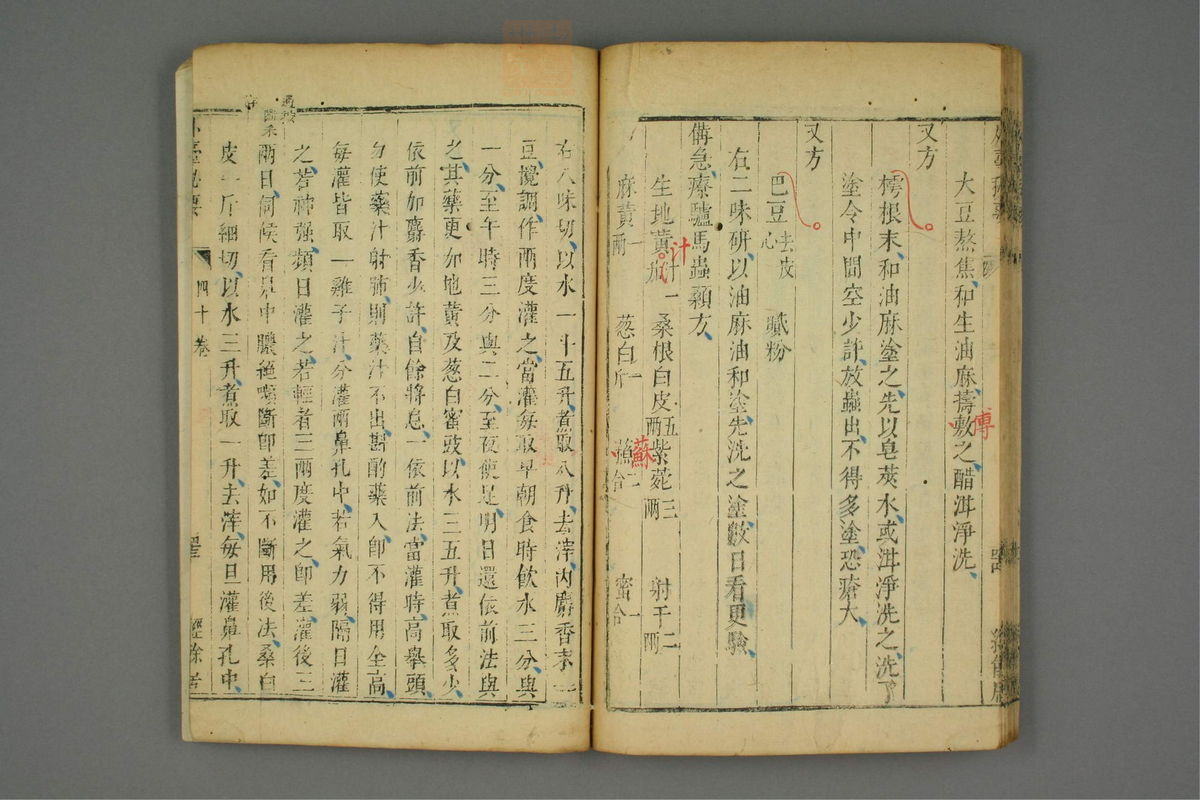 大豆熬焦和生油麻擣敷之醋泔淨洗
傅
又方
樗根末和油麻塗之先以皂莢水或泔淨洗之洗了
塗令中間空少許放蟲出不得多塗恐瘡大
又方
巴豆去皮心 膩粉
右二味研以油麻油和塗先洗之塗數日看更驗
備急療驢馬蟲顙方
生地黃汁一 桑根白皮五兩 紫菀三兩 射干二兩
汁
麻黃一兩 葱白一 二合 蜜一合
蘇
右八味切以水一斗五升煮取八升去滓內麝香末一
豆攪調作兩度灌之當灌每取早朝食時飲水三分與
一分至午時三分與二分至夜使足明日還依前法與
之其藥更加地黃及葱白蜜豉以水三五升煮取多少
依前加麝香少許自餘將息一依前法當灌時高舉頭
勿使藥汁射肺則藥汁不出斟酌藥入即不得用全高
每灌皆取一雞子汁分灌兩鼻孔中若氣力弱隔日灌
之若神強頻日灌之若輕者三兩度灌之即差灌後三
兩日伺候看鼻中膿絕嗽斷即差如不斷用後法桑白
皮一斤細切以水三升煮取一升去滓每旦灌鼻孔中
外臺秘要 四十卷